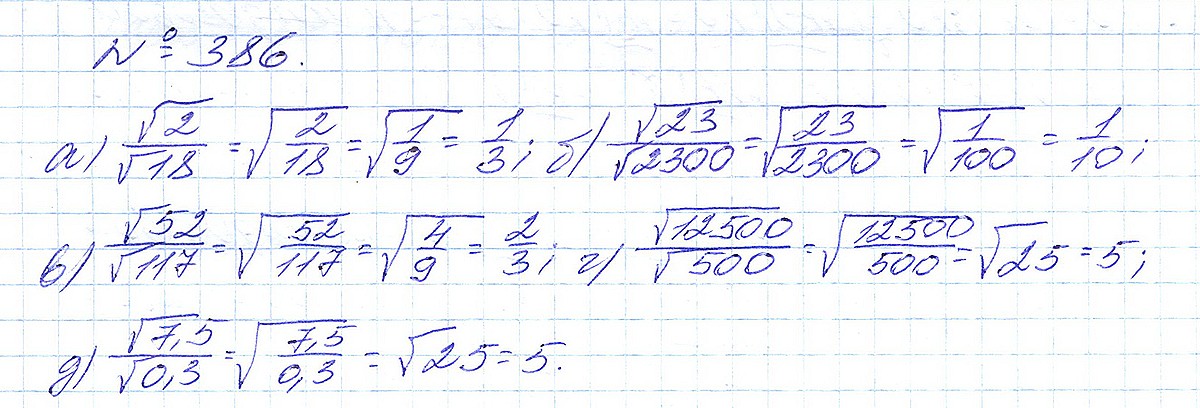 № 386.
а) √2/√18 = √(2/18) = √(1/9) = 1/3; б) √23/√2300 = √(23/2300) = √(1/100) = 1/10;
в) √52/√117 = √(52/117) = √(4/9) = 2/3; г) √12500/√500 = √(12500/500) = √25 = 5;
д) √7,5/√0,3 = √(7,5/0,3) = √25 = 5.